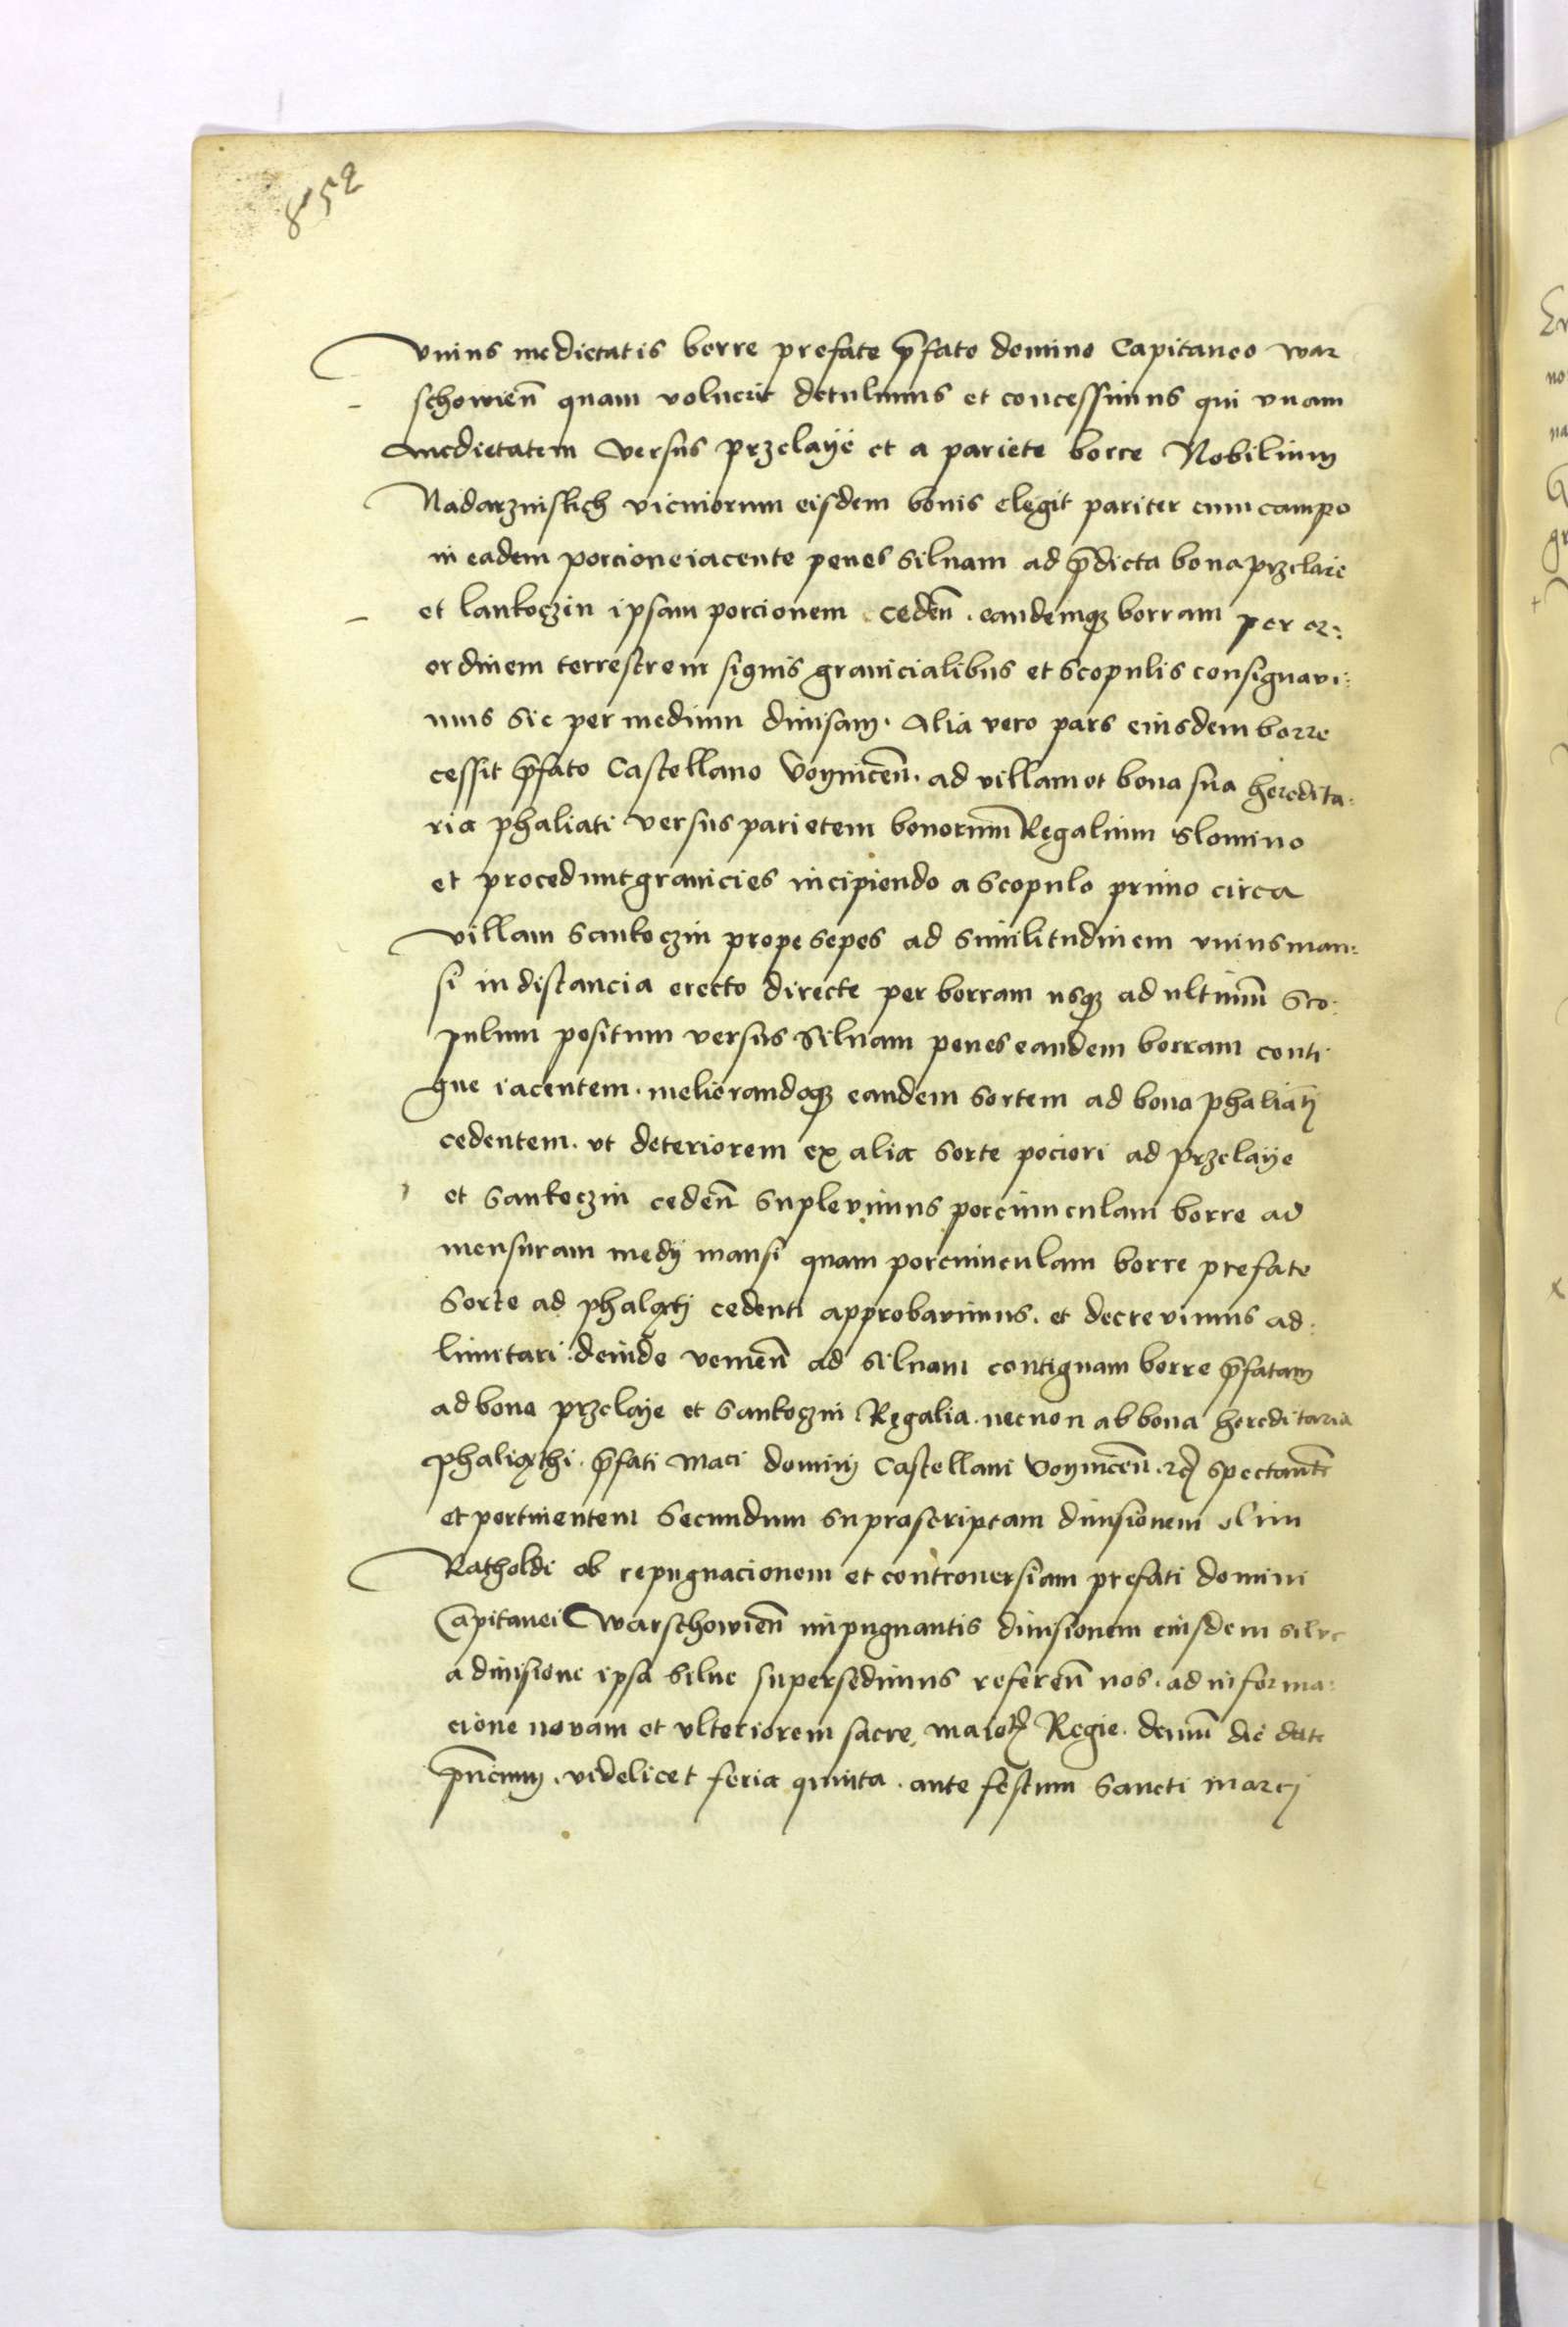 852
vnius medietatis borre prefate p̄fato domino Capitaneo war
schowien̄ quam voluerit detulimus et concessimus qui vnam
medietatem versus przelaye et a pariete borre Nobilium
Nadarzinskich vicinorum eisdem bonis elegit pariter cum campo
in eadem porcione iacente penes siluam ad p̄dicta bona przelaie
et lankoczin ipsam porcionem ceden̄. eandemqʒ borram per or:
ordinem terrestrem signis granicialibus et scopulis consignaui:
mus sic per medium diuisam. Alia vero pars eiusdem borre
cessit p̄fato Castellano Voynicen̄. ad villam et bona sua heredita:
ria phaliati versus parietem bonorum̄ Regalium slomino
et procedunt granicies incipiendo a scopulo primo circa
villam sankoczin prope sepes ad similitudinem vnius man:
si in distancia erecto directe per borram usqʒ ad ultimū sco:
pulum positum versus siluam penes eandem borram conti
gue iacentem. meliorandoqʒ eandem sortem ad bona phaliati
cedentem. vt deteriorem ex alia sorte pociori ad przelaye
et sankoczin ceden̄ supleuimus porciunculam borre ad
mensuram medij mansi quam porciunculam borre prefate
sorte ad phalati cedenti approbauimus. et decreuimus ad:
limitari. deinde venien̄ ad siluam contiguam borre p̄fatam
ad bona przelaye et sankoczin Regalia. necnon ab bona hereditaria
phaliathi. p̄fati maci domini Castellani Voynicen̄. spectante
et pertinentem secundum suprascriptam diuisionem olim
Ratholdi ob repugnacionem et controuersiam prefati domini
Capitanei Warschowien̄ impugnantis diuisionem eiusdem silue
a diuisione ipsa silue supersedimus referen̄ nos. ad informa:
cione nouam et vlteriorem sacre maiest Regie. demū die date
pn̄cium. videlicet feria quinta. ante festum sancti marci